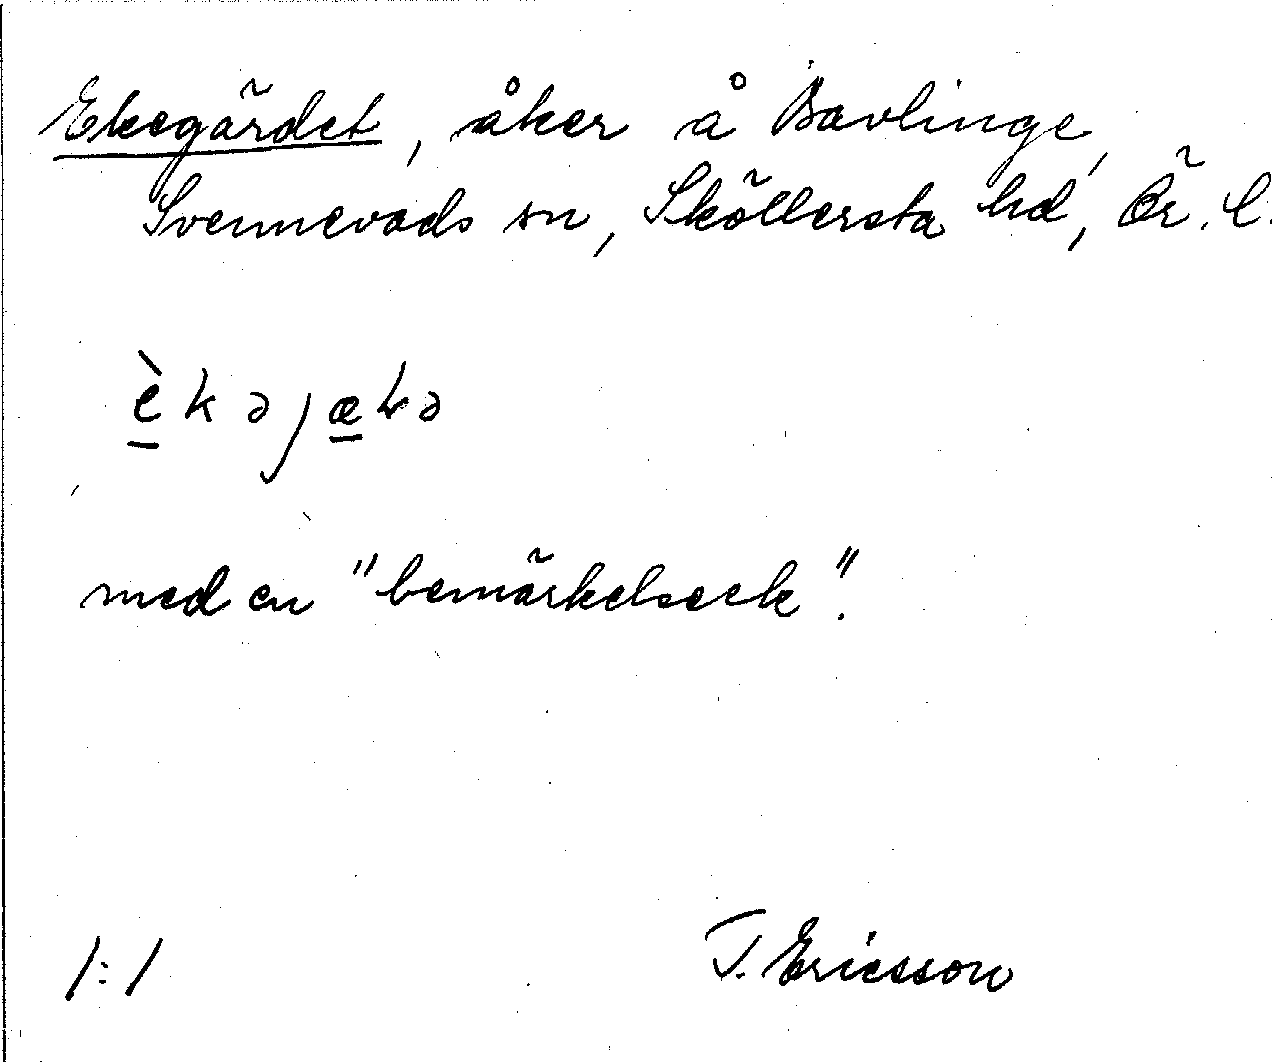 Ekegärdet, åker å Bavlinge,
Svennevads sn, Sköllersta hd, Ör. l.
èkəjæ
med en "bemärkelseek".
1:1
T. Ericsson